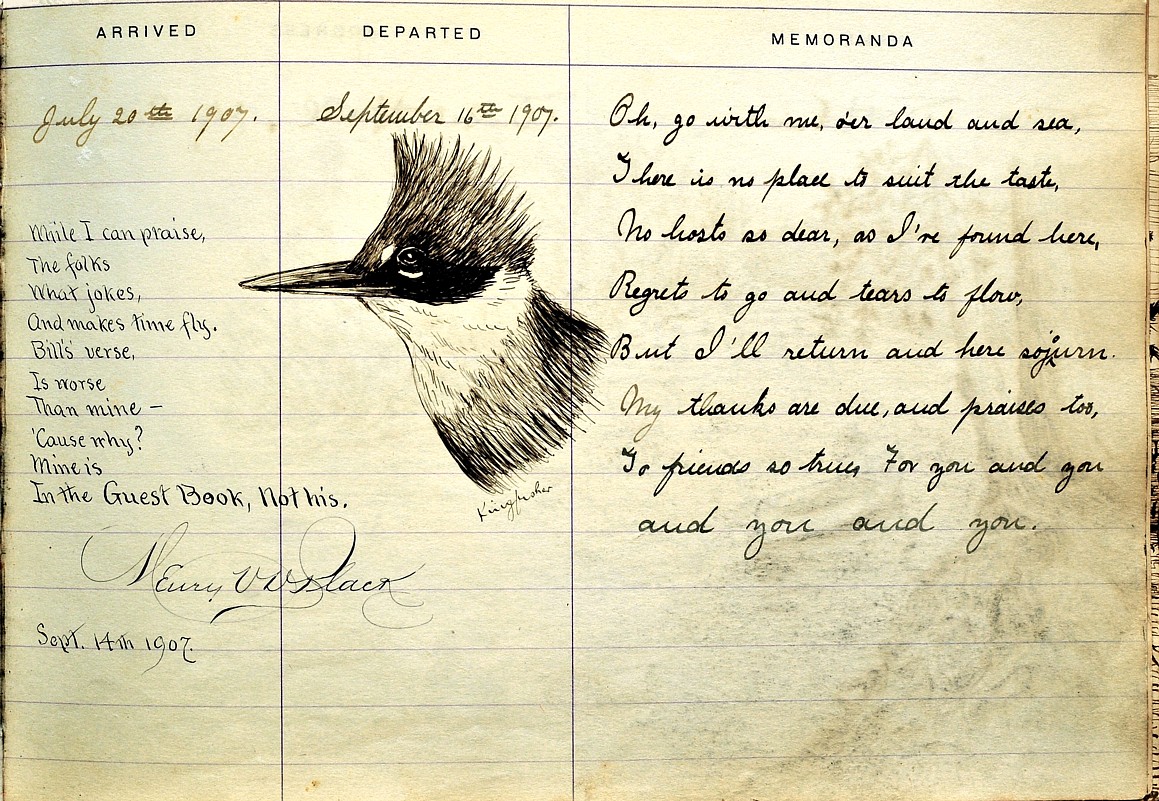 ARRIVED
DEPARTED
MEMORANDA
July 20th 1907.
September 16th 1907.
Oh, go with me, o'er land and sea,
There is no place to suit the taste,
No hosts so dear, as I've found here,
Regrets to go and tears to flow,
But I'll return and here sojourn.
My thanks are due, and praises too,
To friends so true, For you and you
and you and you.
While I can praise,
The folks
What jokes,
And makes time fly.
Bill's verse,
Is worse
Than mine –
'Cause why?
Mine is
In the Guest Book, Not his.
Kingfisher
Henry V. D. Black
Sept. 14th 1907.